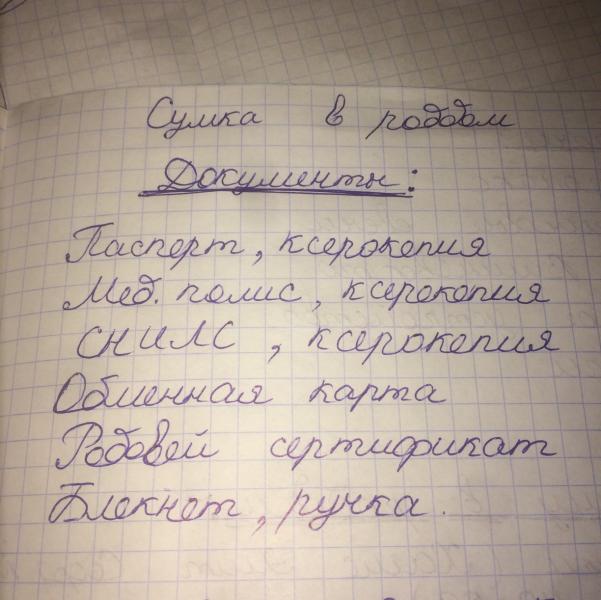 Сумка в роддом
Документы:
Паспорт, ксерокопия
Мед. полис, ксерокопия
СНИЛС, ксерокопия
Обменная карта
Родовой сертификат
Блокнот, ручка.